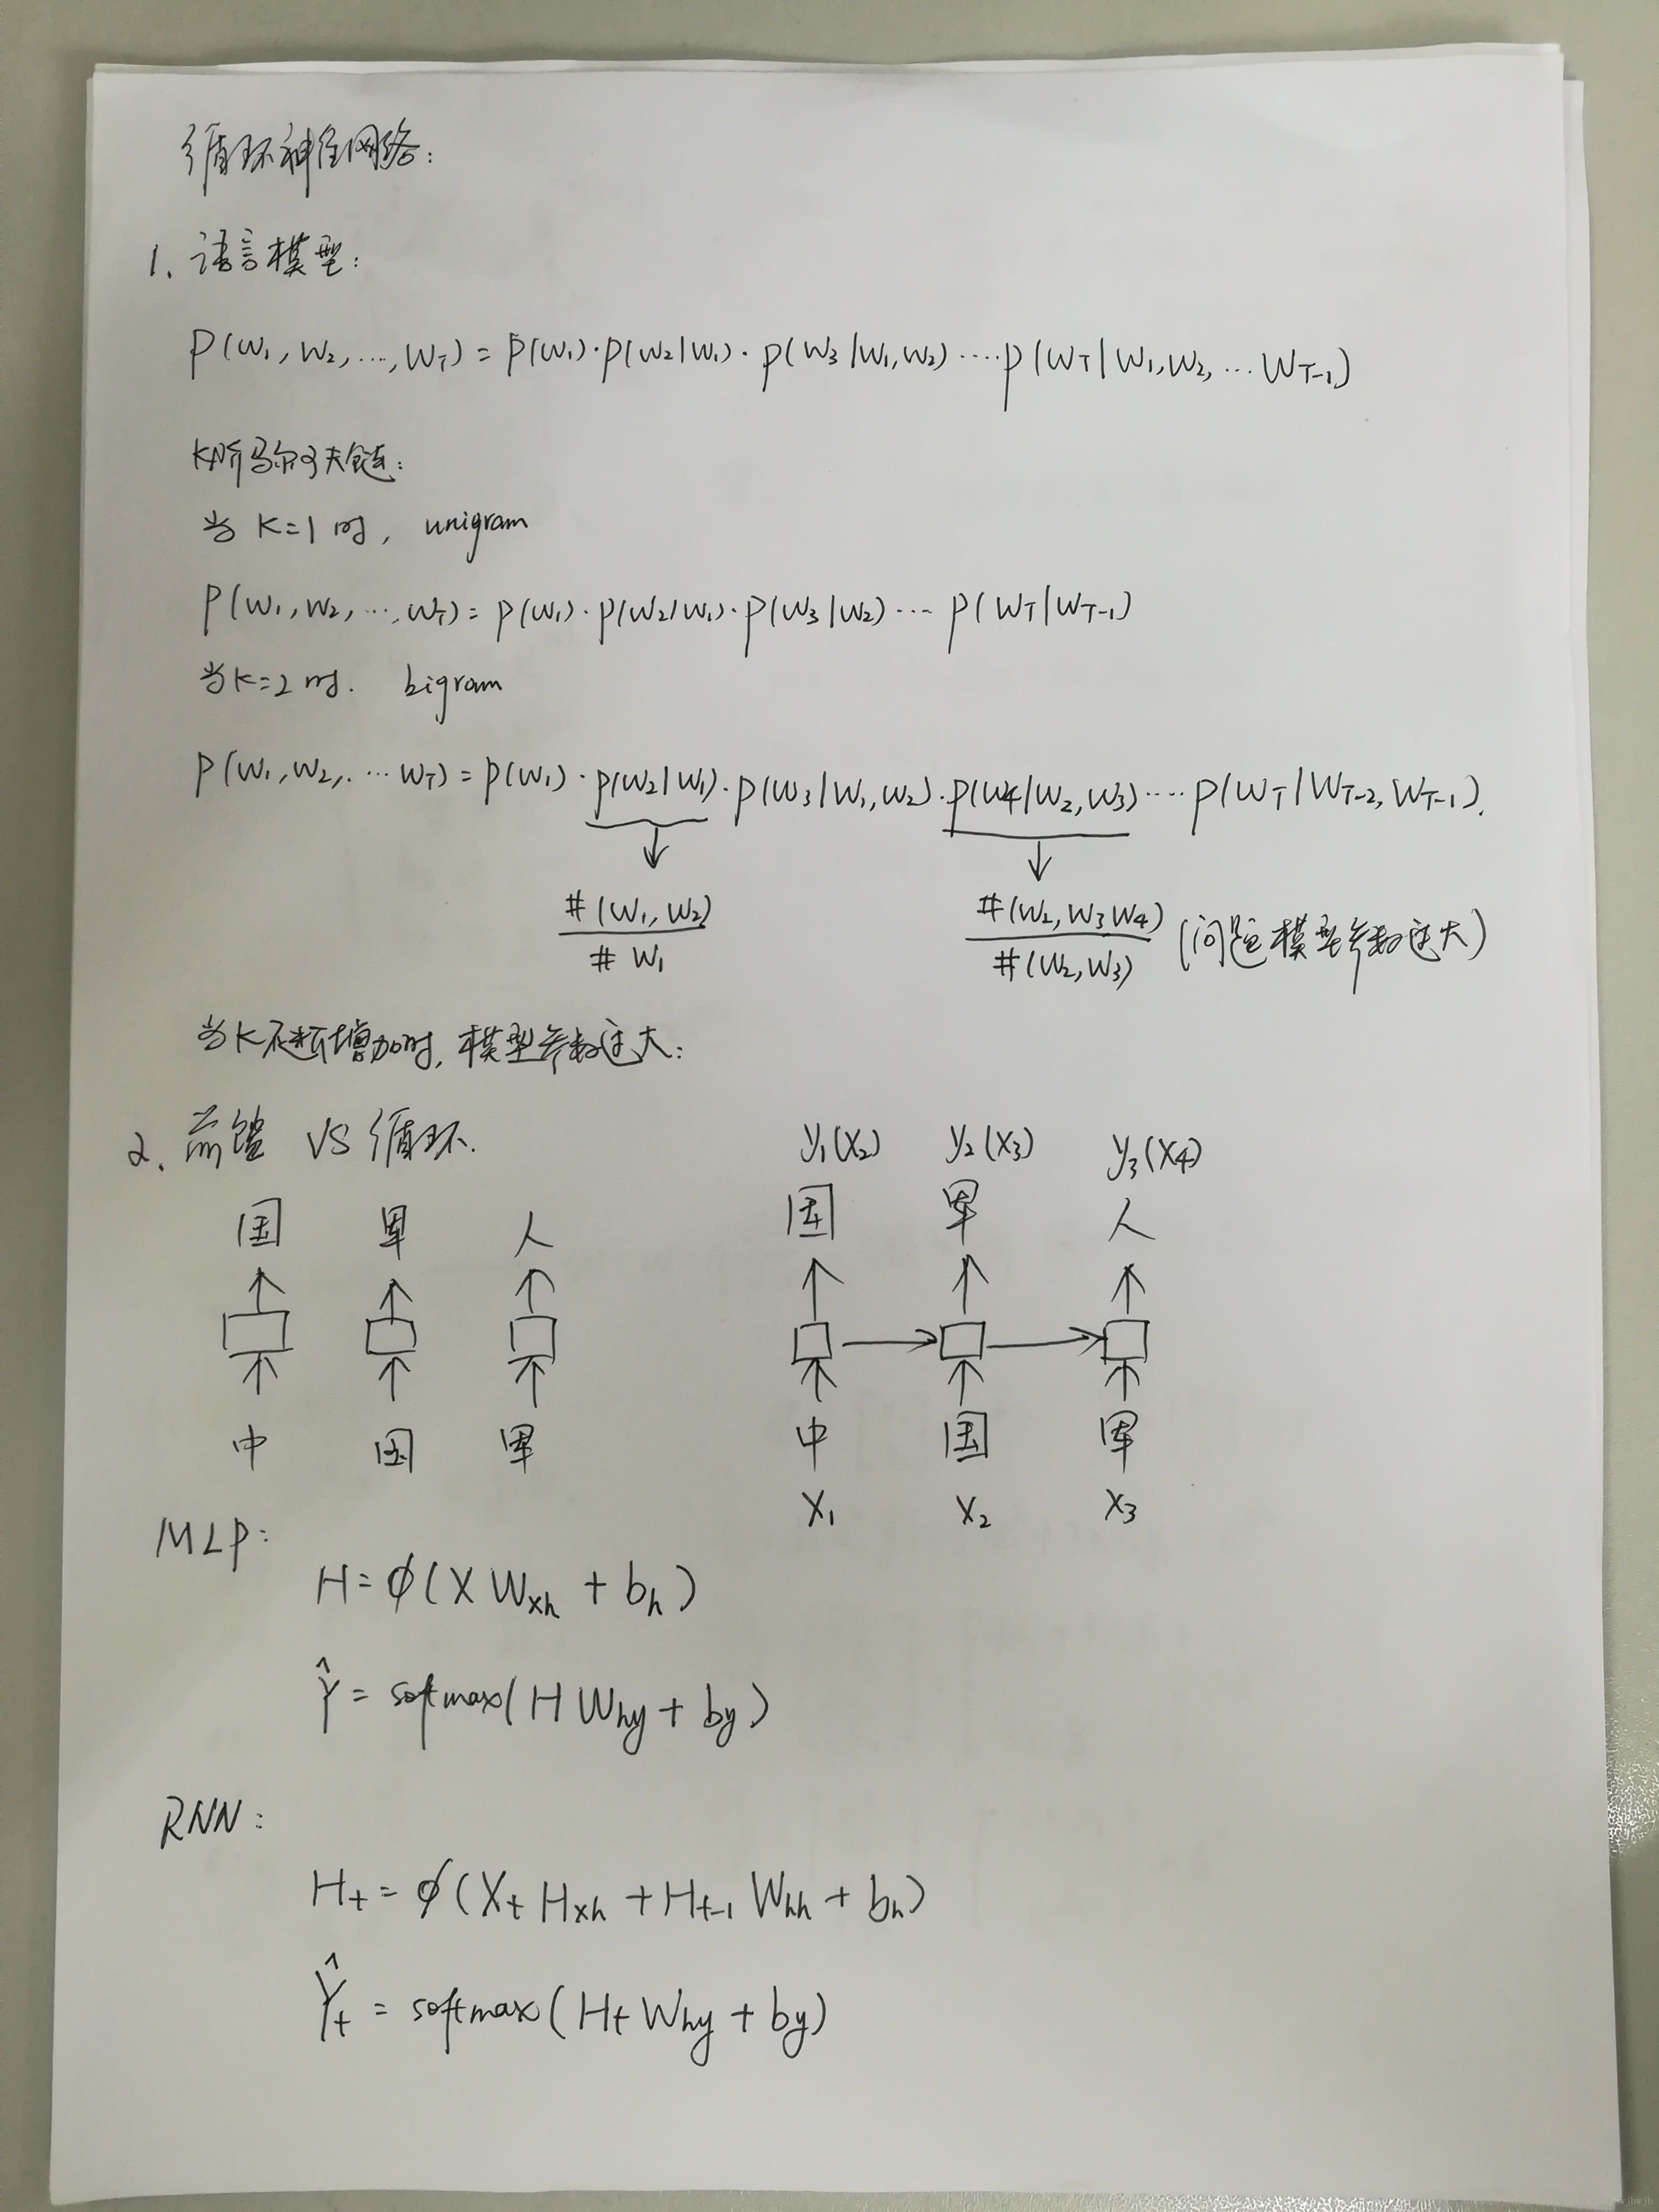 循环神经网络:
1. 语言模型:
P(W₁, W₂, ..., W_T) = P(W₁)·P(W₂|W₁)·P(W₃|W₁,W₂)····P(W_T|W₁,W₂,...W_{T-1})
K阶马尔可夫链:
当 K=1 时, unigram
P(W₁, W₂, ..., W_T) = P(W₁)·P(W₂|W₁)·P(W₃|W₂)···P(W_T|W_{T-1})
当K=2时. bigram
P(W₁, W₂, ...W_T) = P(W₁)·P(W₂|W₁)·P(W₃|W₁,W₂)·P(W₄|W₂,W₃)····P(W_T|W_{T-2},W_{T-1}).
↓ ↓
#(W₁,W₂) #(W₂,W₃W₄)
# W₁ #(W₂,W₃) (问题模型参数过大)
当K不断增加时,模型参数过大:
2. 前馈 VS 循环.
y₁(X₂) y₂(X₃) y₃(X₄)
国 军 人 国 军 人
中 国 军 中 国 军
X₁ X₂ X₃
MLP:
H=φ(X W_{xh} + b_h)
Ŷ = softmax(H W_{hy} + b_y)
RNN:
H_t = φ(X_t H_{xh} + H_{t-1} W_{hh} + b_h)
Ŷ_t = softmax(H_t W_{hy} + b_y)